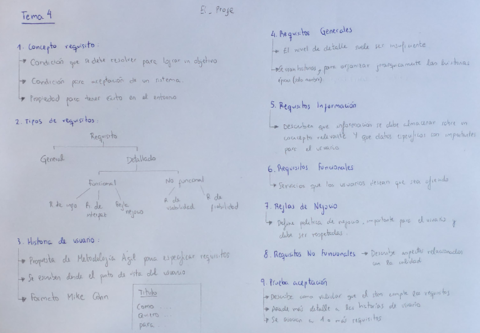 Tema 4
1. Concepto requisito:
→ Condición que se debe resolver para lograr un objetivo.
→ Condición para aceptación de un sistema.
→ Propiedad para tener éxito en el entorno
2. Tipos de requisitos:
Requisito
General Detallados
Funcional No funcional
Regla
negocio
R de
usabilidad
R de
fiabilidad
3. Historia de usuario:
→ Propuesta de Metodología Ágil para especificar requisitos
→ Se escriben desde el punto de vista del usuario
→ Formato Mike Cohn
Título
Como
quiero
para
4. Requisitos Generales
→ El nivel de detalle suele ser
5. Requisitos Información
→ Describen que información se debe almacenar sobre un
concepto relevante y que datos específicos son importantes
para el usuario
6. Requisitos funcionales
→ Servicios que los usuarios
7. Reglas de Negocio
→ Define política de negocio, importante para el usuario y
debe ser respetadas.
8. Requisitos No funcionales → Describe aspectos relacionados
con la calidad
9. Prueba aceptación
→ Describe como validar que el sist. cumple los requisitos
→ Añade más detalle a las historias de usuario
→ Se asocia a 1 o más requisitos.